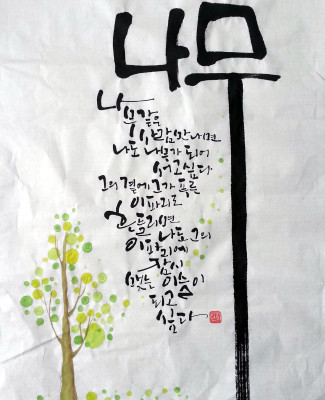 나무
나
무같은
사람만나면
나도 나무가 되어
서고싶다
그의 곁에 그가 푸른
이파리로
흔들리면
나도 그의
이파리에
잠시
맺는 이슬이
되고
싶다